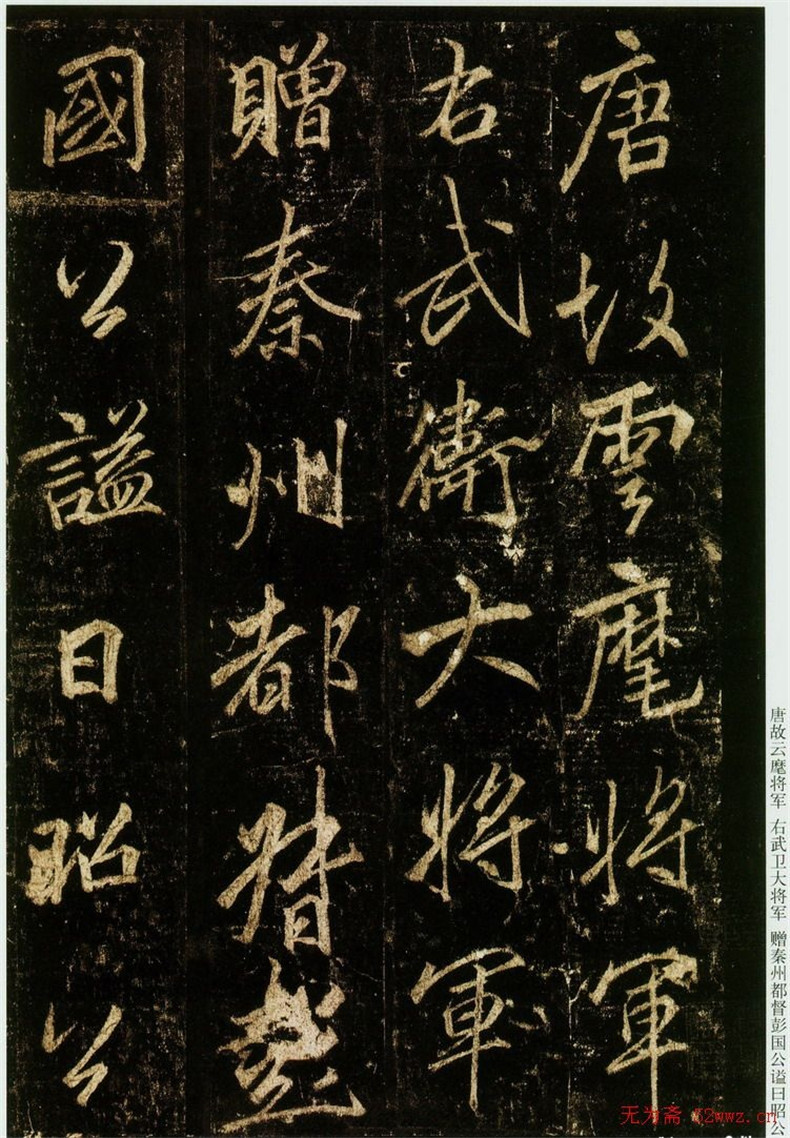 唐故雲麾將軍
右武衛大將軍
贈秦州都督彭
國公謚曰昭公
唐故云麾将军 右武卫大将军 赠秦州都督彭国公谥曰昭公
无为斋 52wwz.cn